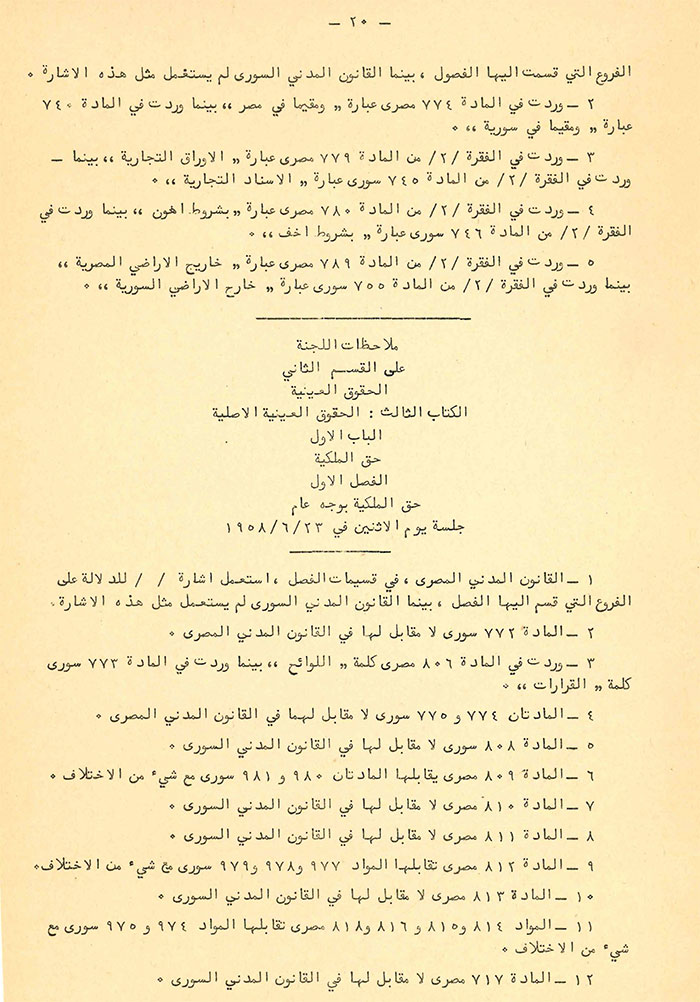 — ٢٠ —
الفروع التي قسمت اليها الفصول ، بينما القانون المدني السورى لم يستعمل مثل هذه الاشارة ٠
٢ ــ وردت في المادة ٧٧٤ مصرى عبارة „ ومقيما في مصر ،، بينما وردت في المادة ٧٤٠
عبارة „ ومقيما في سورية ،، ٠
٣ ــ وردت في الفقرة /٢/ من المادة ٧٧٩ مصرى عبارة „ الاوراق التجارية ،، بينما ــ
وردت في الفقرة /٢/ من المادة ٧٤٥ سورى عبارة „ الاسناد التجارية ،، ٠
٤ ــ وردت في الفقرة /٢/ من المادة ٧٨٠ مصرى عبارة „ بشروط اهون ،، بينما وردت في
الفقرة /٢/ من المادة ٧٤٦ سورى عبارة „ بشروط اخف ،، ٠
٥ ــ وردت في الفقرة /٢/ من المادة ٧٨٩ مصرى عبارة „ خاريج الاراضي المصرية ،،
بينما وردت في الفقرة /٢/ من المادة ٧٥٥ سورى عبارة „ خارج الاراضي السورية ،، ٠
ملاحظات اللجنة
على القسم الثاني
الحقوق العينية
الكتاب الثالث : الحقوق العينية الاصلية
الباب الاول
حق الملكية
الفصل الاول
حق الملكية بوجه عام
جلسة يوم الاثنين في ١٩٥٨/٦/٢٣
١ ــ القانون المدني المصرى ، في تقسيمات الفصل ، استعمل اشارة / / للدلالة على
الفروع التي قسم اليها الفصل ، بينما القانون المدني السورى لم يستعمل مثل هذه الاشارة ٠
٢ ــ المادة ٧٧٢ سورى لا مقابل لها في القانون المدني المصرى ٠
٣ ــ وردت في المادة ٨٠٦ مصرى كلمة „ اللوائح ،، بينما وردت في المادة ٧٧٣ سورى
كلمة „ القرارات ،، ٠
٤ ــ المادتان ٧٧٤ و ٧٧٥ سورى لا مقابل لهما في القانون المدني المصرى ٠
٥ ــ المادة ٨٠٨ سورى لا مقابل لها في القانون المدني السورى ٠
٦ ــ المادة ٨٠٩ مصرى يقابلها المادتان ٩٨٠ و ٩٨١ سورى مع شيء من الاختلاف ٠
٧ ــ المادة ٨١٠ مصرى لا مقابل لها في القانون المدني السورى ٠
٨ ــ المادة ٨١١ مصرى لا مقابل لها في القانون المدني السورى ٠
٩ ــ المادة ٨١٢ مصرى تقابلها المواد ٩٧٧ و٩٧٨ و٩٧٩ سورى مع شيء من الاختلاف ٠
١٠ ــ المادة ٨١٣ مصرى لا مقابل لها في القانون المدني السورى ٠
١١ ــ المواد ٨١٤ و٨١٥ و ٨١٦ و٨١٨ مصرى تقابلها المواد ٩٧٤ و ٩٧٥ سورى مع
شيء من الاختلاف ٠
١٢ ــ المادة ٧١٧ مصرى لا مقابل لها في القانون المدني السورى ٠